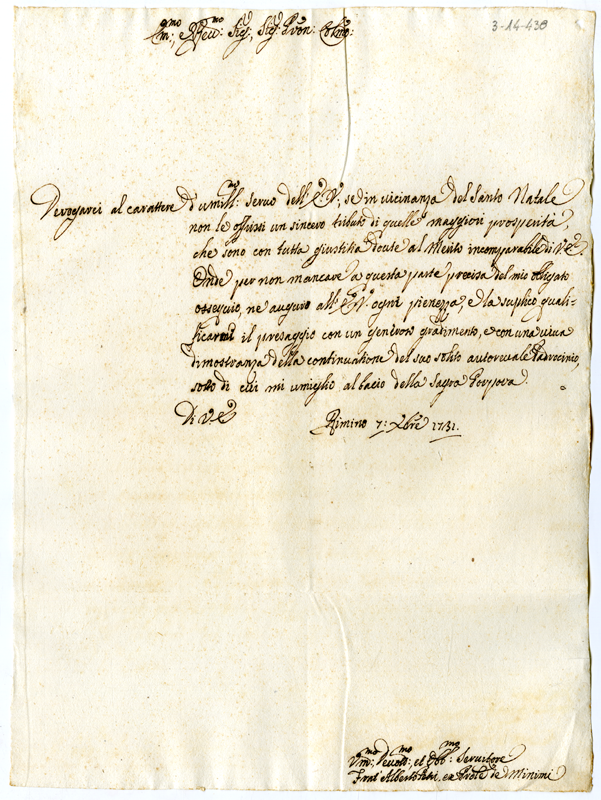 3-14-438
Em:mo, e Rev:mo Sig:, Sig: Pron: Col:mo:
Derogarei al carattere d'umill:mo servo dell'E.V., se in vicinanza del Santo Natale
non le offrissi un sincero tributo di quelle maggiori prosperità,
che sono con tutta giustitia dovute al Merito incomparabile di V.E.
Onde per non mancare a questa parte precisa del mio obligato
ossequio, ne auguro all'E.V. ogni pienezza, e la suplico quali-
ficarmi il presaggio con un generoso gradimento, e con una viva
dimostranza della continuatione del suo solito autorevole Padrocinio,
sotto di cui mi umiglio al bacio della Sagra Porpora.
Di V.E.
Rimino 7: Xbre 1731.
Um:mo Devot:mo, et Obb:mo Servitore
Frat' Alberto, ex Prov.le de Minimi